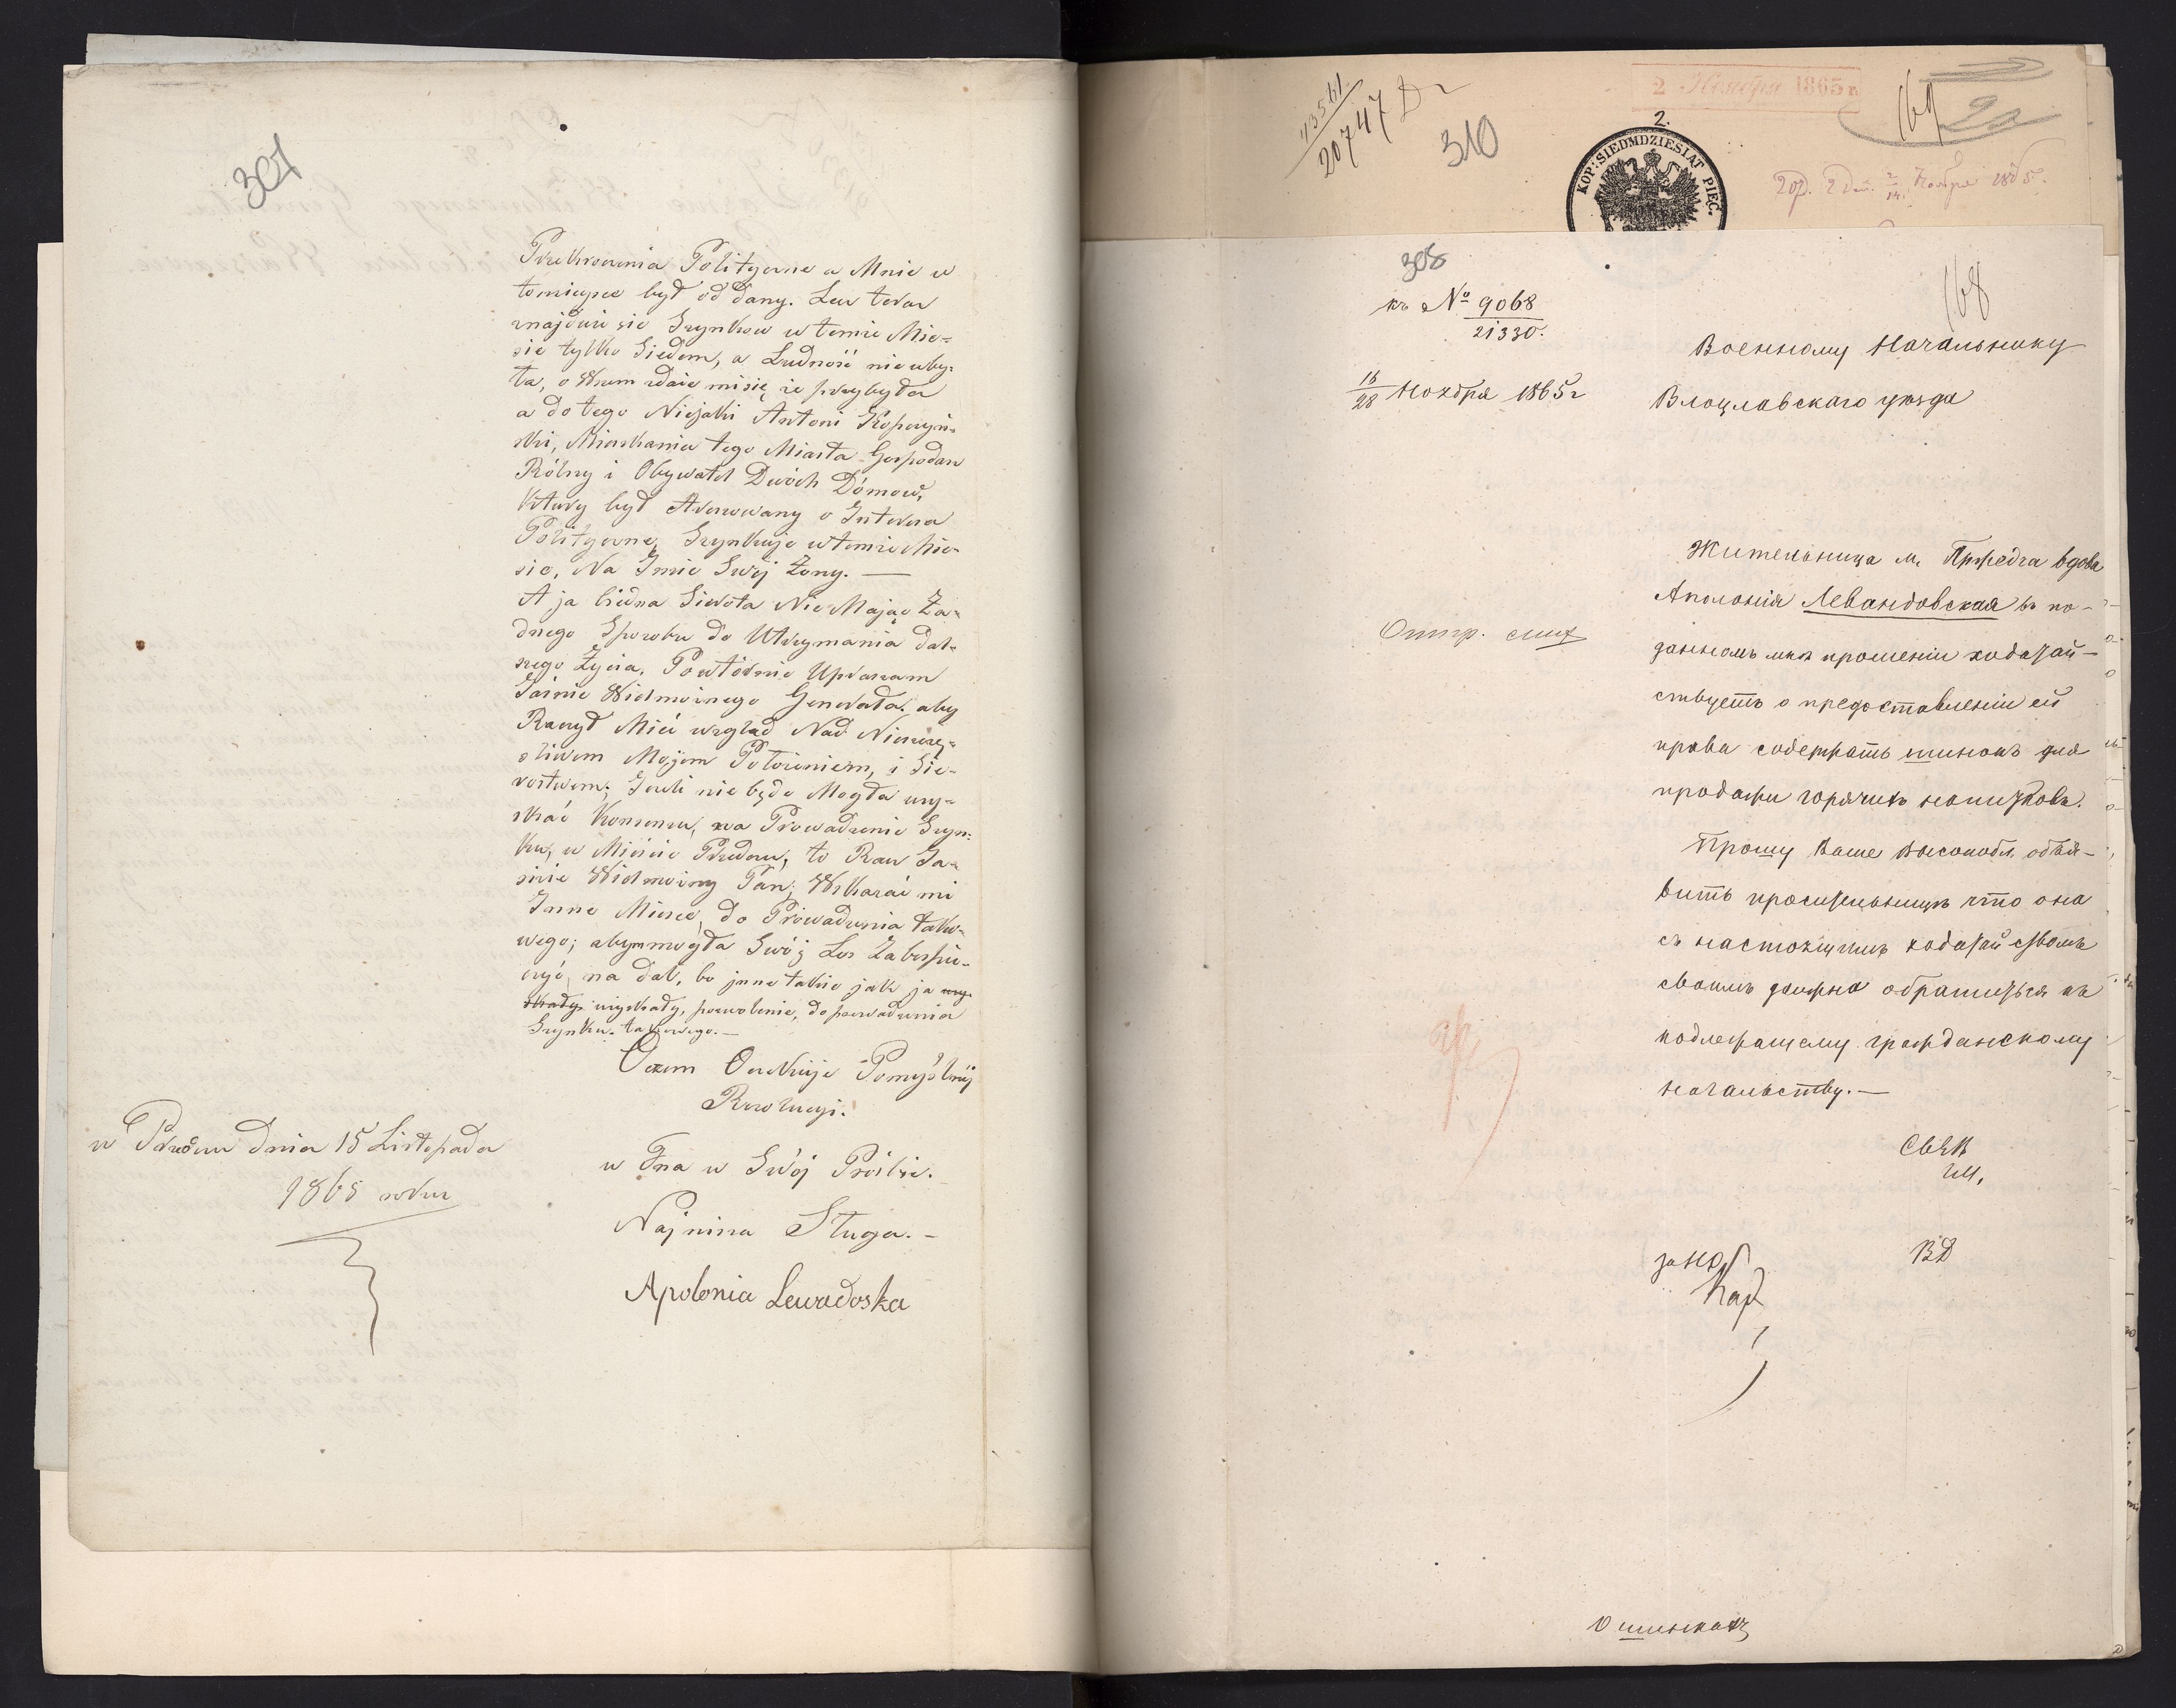 307
Przekroczenia Polityczne a Mnie w
to miejsce był od dany. Lecz teraz
znajduie sie Szynkow w temze Mie-
sie tylko Siedem, a Ludność nie uby-
ła, o Wszem zdaie misię że przybyła
a do tego Niejaki Antoni
ski, Mieszkaniec tego Miasta Gospodarz
Rólny i Obywatel Dwóch Dómow,
Ktury był Areszowany o Interesa
Polityczne, Szynkuje w temze Mie-
sie, Na Imie Swoj Żony. —
A ja biedna Sierota Nie Mając Ża-
dnego Sposobu do Utrzymania dal-
szego Życia, Powtórnie Upraszam
Jaśnie Wielmoinego Generała, aby
Raczył Mieć wzgląd Nad Nieszczę-
śliwem Mojem Położeniem, i Sie-
rostwem; Jeżeli nie będe Mogła uzy-
skać Konsensu, na Prowadzenie Szyn-
ku, w Mieście Przedczu, to Racz Ja-
śnie Wielmoiny Pan; Wskazać mi
Inne Miesce, do Prowadzenia takie-
wego; abym mogła Swój Los Zabespie-
czyć na dal, bo inne takie jak ja uzy-
skały uzyskały, pozwolenie, do prowadzenia
Szynku takowego. —
Oczem Oczekuje Pomyślnéj
Rezolucyi.
w Przedczu Dnia 15 Listopada
1865 roku
Najnisza Sługa. -
Apolonia Lewadoska
43561
20747
310
2 Ноября 1865 г
169
2.
KOP: SIEDMDZIESIĄT PIĘĆ.
308
168
къ № 9068
21330.
16/28 Ноября 1865 г
Военному Начальнику
Влоцлавскаго уѣзда
Жительница м. Пржедча вдова
Аполонія Левандовская въ по-
данномъ мнѣ прошеніи ходатай-
ствуетъ о предоставленіи ей
права содержать шинокъ для
продажи горячихъ напитковъ.
Прошу Ваше Высокобл. объя-
вить просительницѣ что она
съ настоящимъ ходатайствомъ
своимъ должна обратиться къ
подлежащему гражданскому
начальству. —
ВД
О шинкахъ